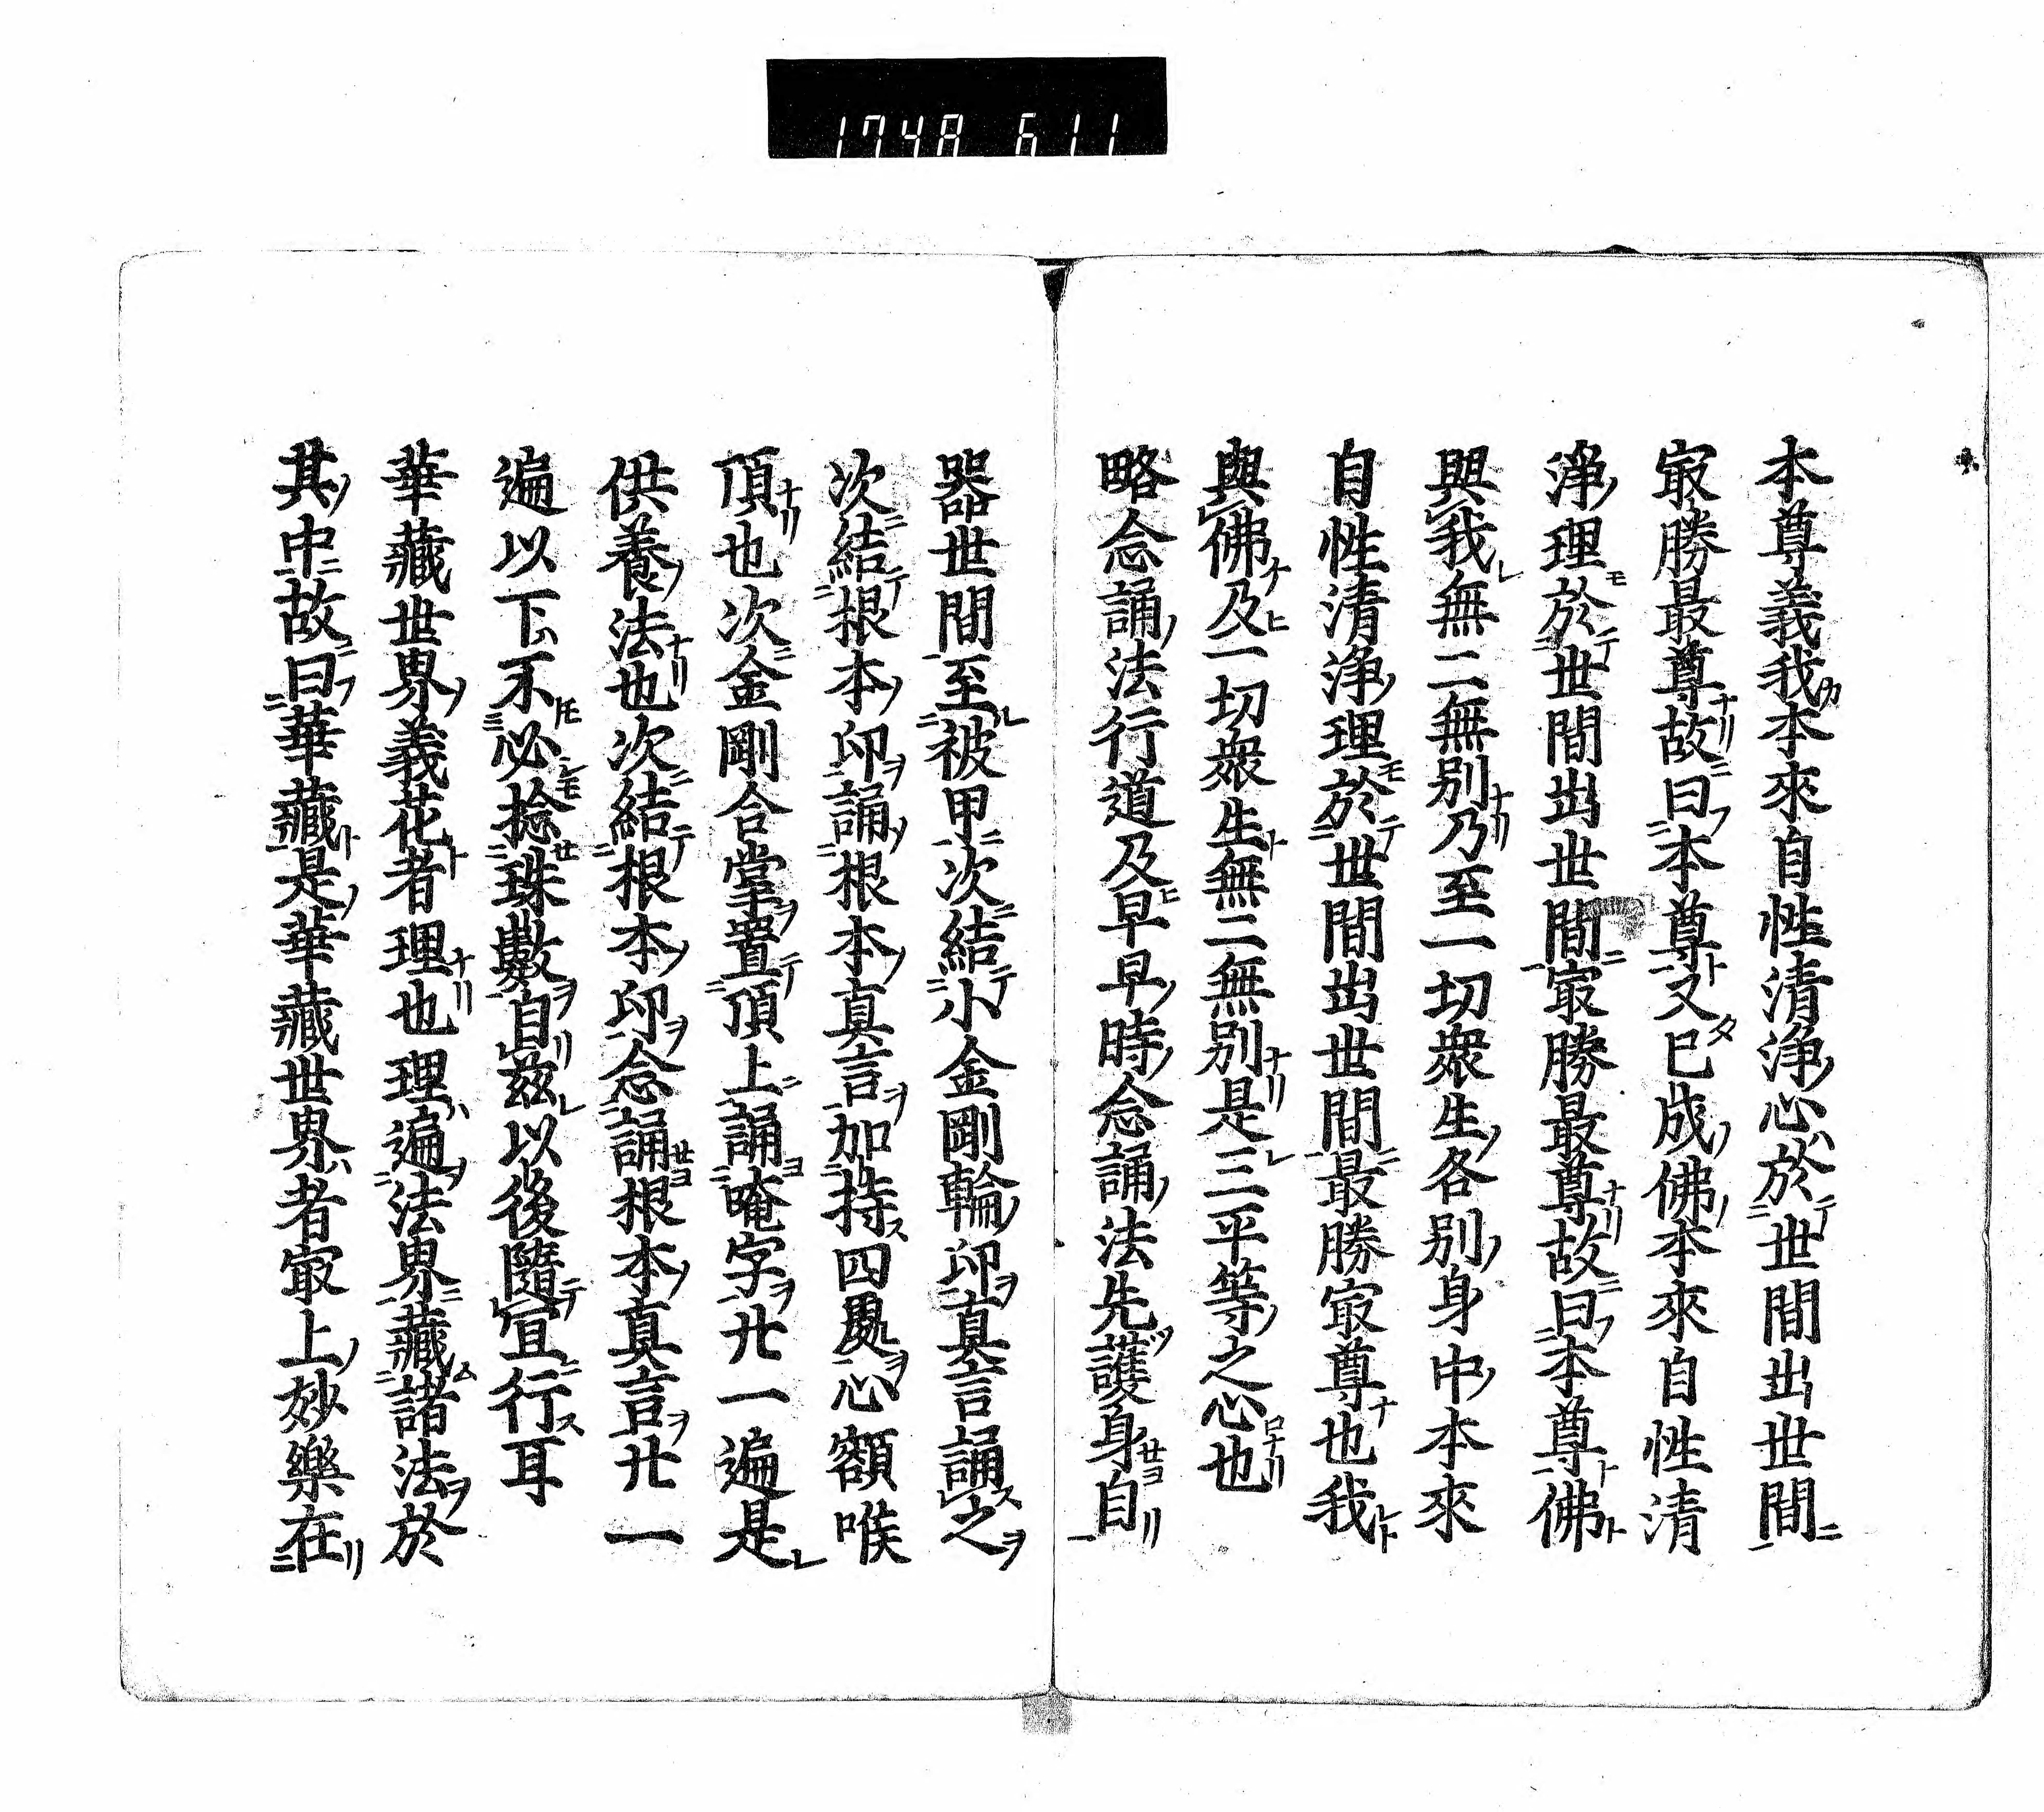 1748 611
本尊義我本來自性清淨心於世間出世間
冣勝最尊故曰本尊又已成佛本來自性清
淨理於世間出世間冣勝最尊故曰本尊佛
與我無二無別乃至一切衆生各別身中本來
自性清淨理於世間出世間最勝冣尊也我
與佛及一切衆生無二無別是三平等之心也
略念誦法行道及早早時念誦法先護身自
器世間至被甲次結小金剛輪印真言誦之
次結根本印誦根本真言加持四處心額喉
頂也次金剛合掌置頂上誦唵字廿一遍是
供養法也次結根本印念誦根本真言廿一
遍以下不必捻珠數自茲以後隨宜行耳
華藏世界義花者理也理遍法界藏諸法於
其中故曰華藏是華藏世界者冣上妙樂在